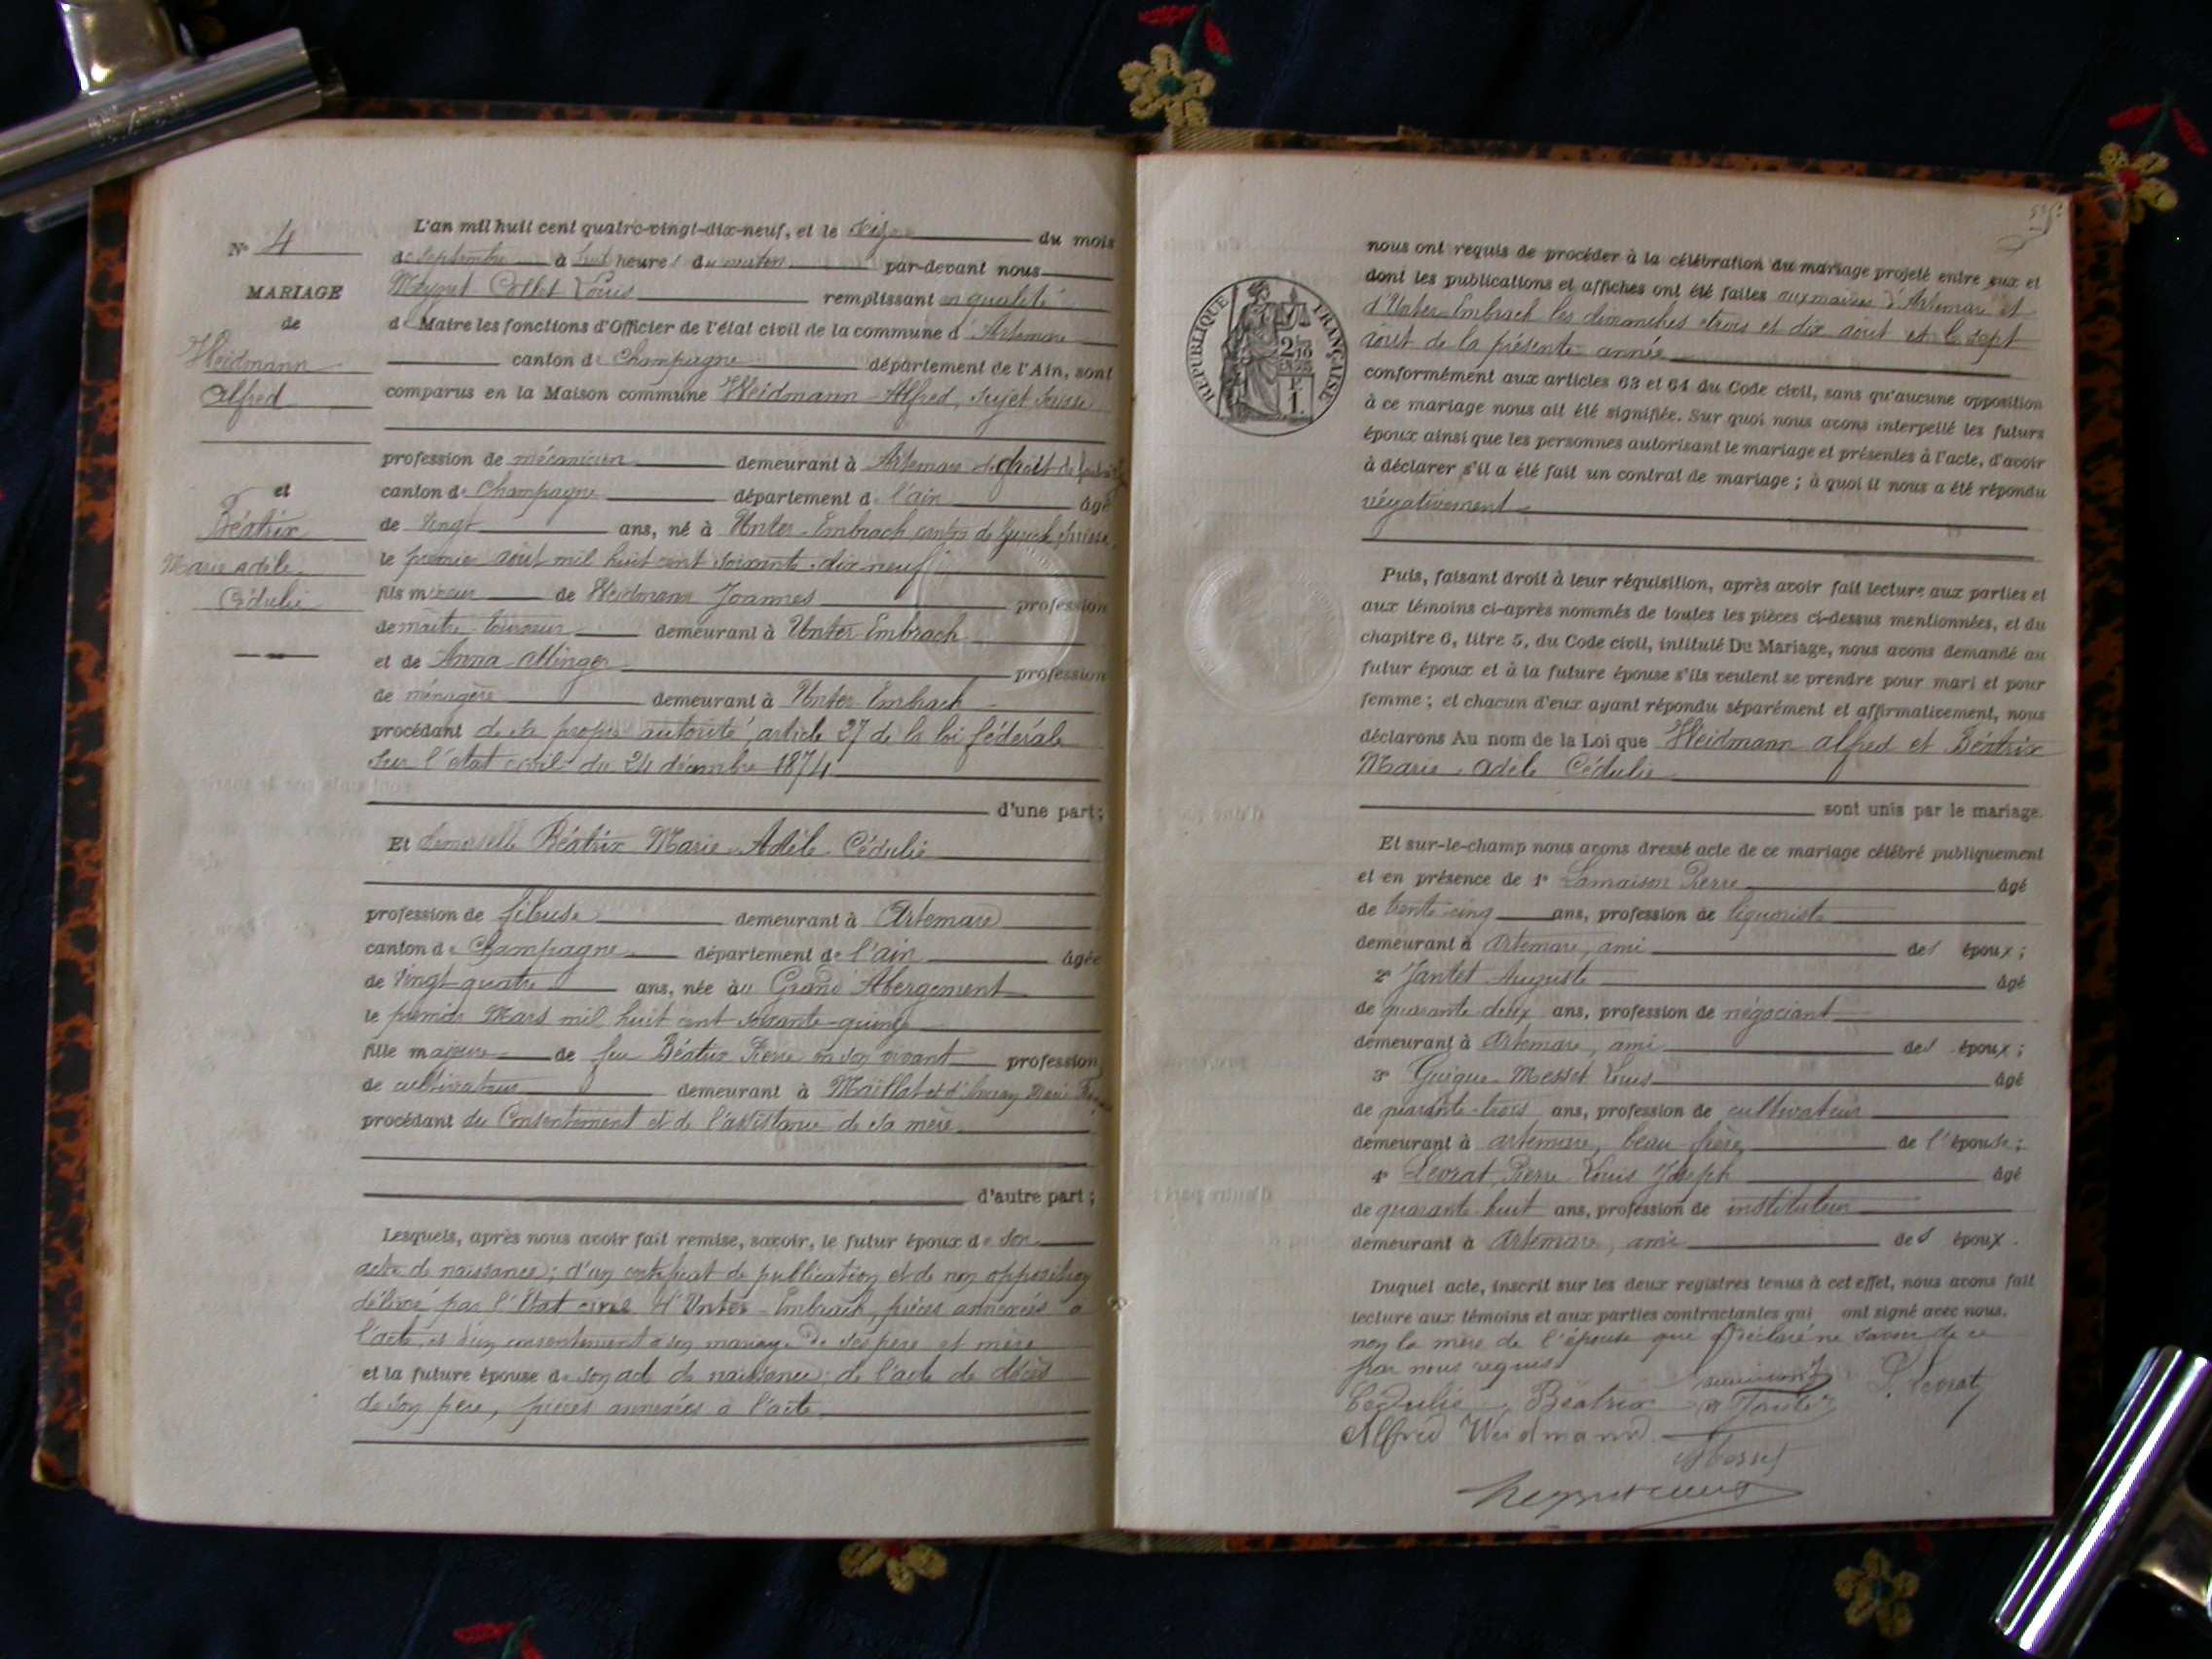 N° 4
MARIAGE
de
Weidmann
Alfred
et
Béatrix
Marie Adèle
Cédulie
L'an mil huit cent quatre-vingt-dix-neuf, et le du mois
de septembre à huit heures du matin par-devant nous
Collet Louis remplissant en qualité
de Maire les fonctions d'Officier de l'état civil de la commune d'Artemare
canton de Champagne département de l'Ain, sont
comparus en la Maison commune Weidmann Alfred, sujet suisse
profession de mécanicien demeurant à Artemare et de droit
canton de Champagne département de l'ain âgé
de vingt ans, né à Unter-Embrach canton de Zurich, Suisse,
le premier août mil huit cent soixante-dix neuf
fils mineur de Weidmann Joannes profession
de maître tourneur demeurant à Unter Embrach
et de Anna Minger profession
de ménagère demeurant à Unter Embrach
procédant de sa propre autorité, article 27 de la loi fédérale
sur l'état civil du 24 décembre 1874
d'une part;
Et demoiselle Béatrix Marie Adèle Cédulie
profession de fileuse demeurant à Artemare
canton de Champagne département de l'ain âgée
de vingt-quatre ans, née au Grand Abergement
le premier Mars mil huit cent soixante-quinze
fille majeure de feu Béatrix Pierre en son vivant profession
de cultivateur demeurant à Maillat et d' Marie
procédant du Consentement et de l'assistance de sa mère
d'autre part;
Lesquels, après nous avoir fait remise, savoir, le futur époux de son
acte de naissance; d'un certificat de publication et de non opposition
délivré par l'Etat civil d'Unter-Embrach, pièces annexées à
l'acte, et d'un consentement à son mariage de ses père et mère
et la future épouse de son acte de naissance; de l'acte de décès
de son père, pièces annexées à l'acte
nous ont requis de procéder à la célébration du mariage projeté entre eux et
dont les publications et affiches ont été faites aux mairies d'Artemare et
d'Unter Embrach les dimanches trois et dix août et le sept
août de la présente année
conformément aux articles 63 et 64 du Code civil, sans qu'aucune opposition
à ce mariage nous ait été signifiée. Sur quoi nous avons interpellé les futurs
époux ainsi que les personnes autorisant le mariage et présentes à l'acte, d'avoir
à déclarer s'il a été fait un contrat de mariage; à quoi il nous a été répondu
négativement
REPUBLIQUE FRANÇAISE
Puis, faisant droit à leur réquisition, après avoir fait lecture aux parties et
aux témoins ci-après nommés de toutes les pièces ci-dessus mentionnées, et du
chapitre 6, titre 5, du Code civil, intitulé Du Mariage, nous avons demandé au
futur époux et à la future épouse s'ils veulent se prendre pour mari et pour
femme; et chacun d'eux ayant répondu séparément et affirmativement, nous
déclarons Au nom de la Loi que Weidmann alfred et Béatrix
Marie Adèle Cédulie
sont unis par le mariage.
Et sur-le-champ nous avons dressé acte de ce mariage célébré publiquement
et en présence de 1° Lamaison Pierre âgé
de trente cinq ans, profession de liquoriste
demeurant à Artemare, ami des époux;
2° Jantet Auguste âgé
de quarante-deux ans, profession de négociant
demeurant à Artemare, ami des époux;
3° Guigue-Messet Louis âgé
de quarante-trois ans, profession de cultivateur
demeurant à artemare, beau-frère de l'épouse;
4° Levrat Pierre Louis Joseph âgé
de quarante-huit ans, profession de instituteur
demeurant à Artemare, ami des époux.
Duquel acte, inscrit sur les deux registres tenus à cet effet, nous avons fait
lecture aux témoins et aux parties contractantes qui ont signé avec nous,
non la mère de l'épouse qui a déclaré ne savoir de ce
par nous requise
Cédulie Béatrix
Alfred Weidmann